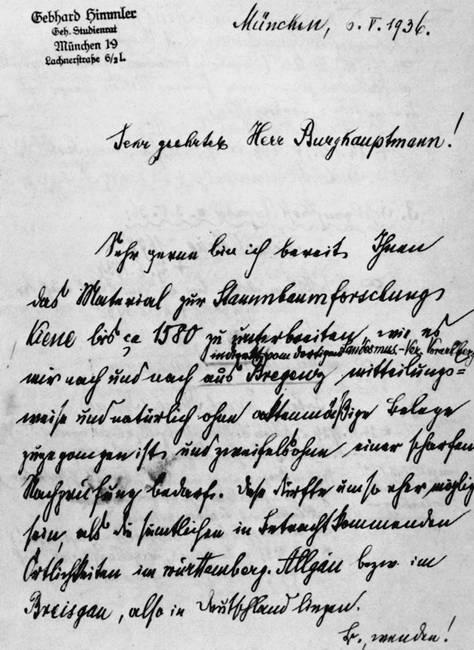 Gebhard Himmler
Geh. Studienrat
München 19
Lachnerstraße 6/2 l.
München, 6. V. 1936.
Sehr geehrter Herr Burghauptmann!
Sehr gerne bin ich bereit, Ihnen
das Material zur Stammbaumforschung
Kiene bis ca 1580 zu unterbreiten, wie es
vom dortigen Landesmus-Ver. Vorarlberg
mir nach und nach aus Bregenz mitteilungs=
weise und natürlich ohne aktenmäßige Belege
zugegangen ist und zweifelsohne einer scharfen
Nachprüfung bedarf. Diese dürfte umso eher möglich
sein, als die sämtlichen in Betracht kommenden
Örtlichkeiten im württemberg. Allgäu bezw. im
Breisgau, also in Deutschland liegen.
B. wenden!